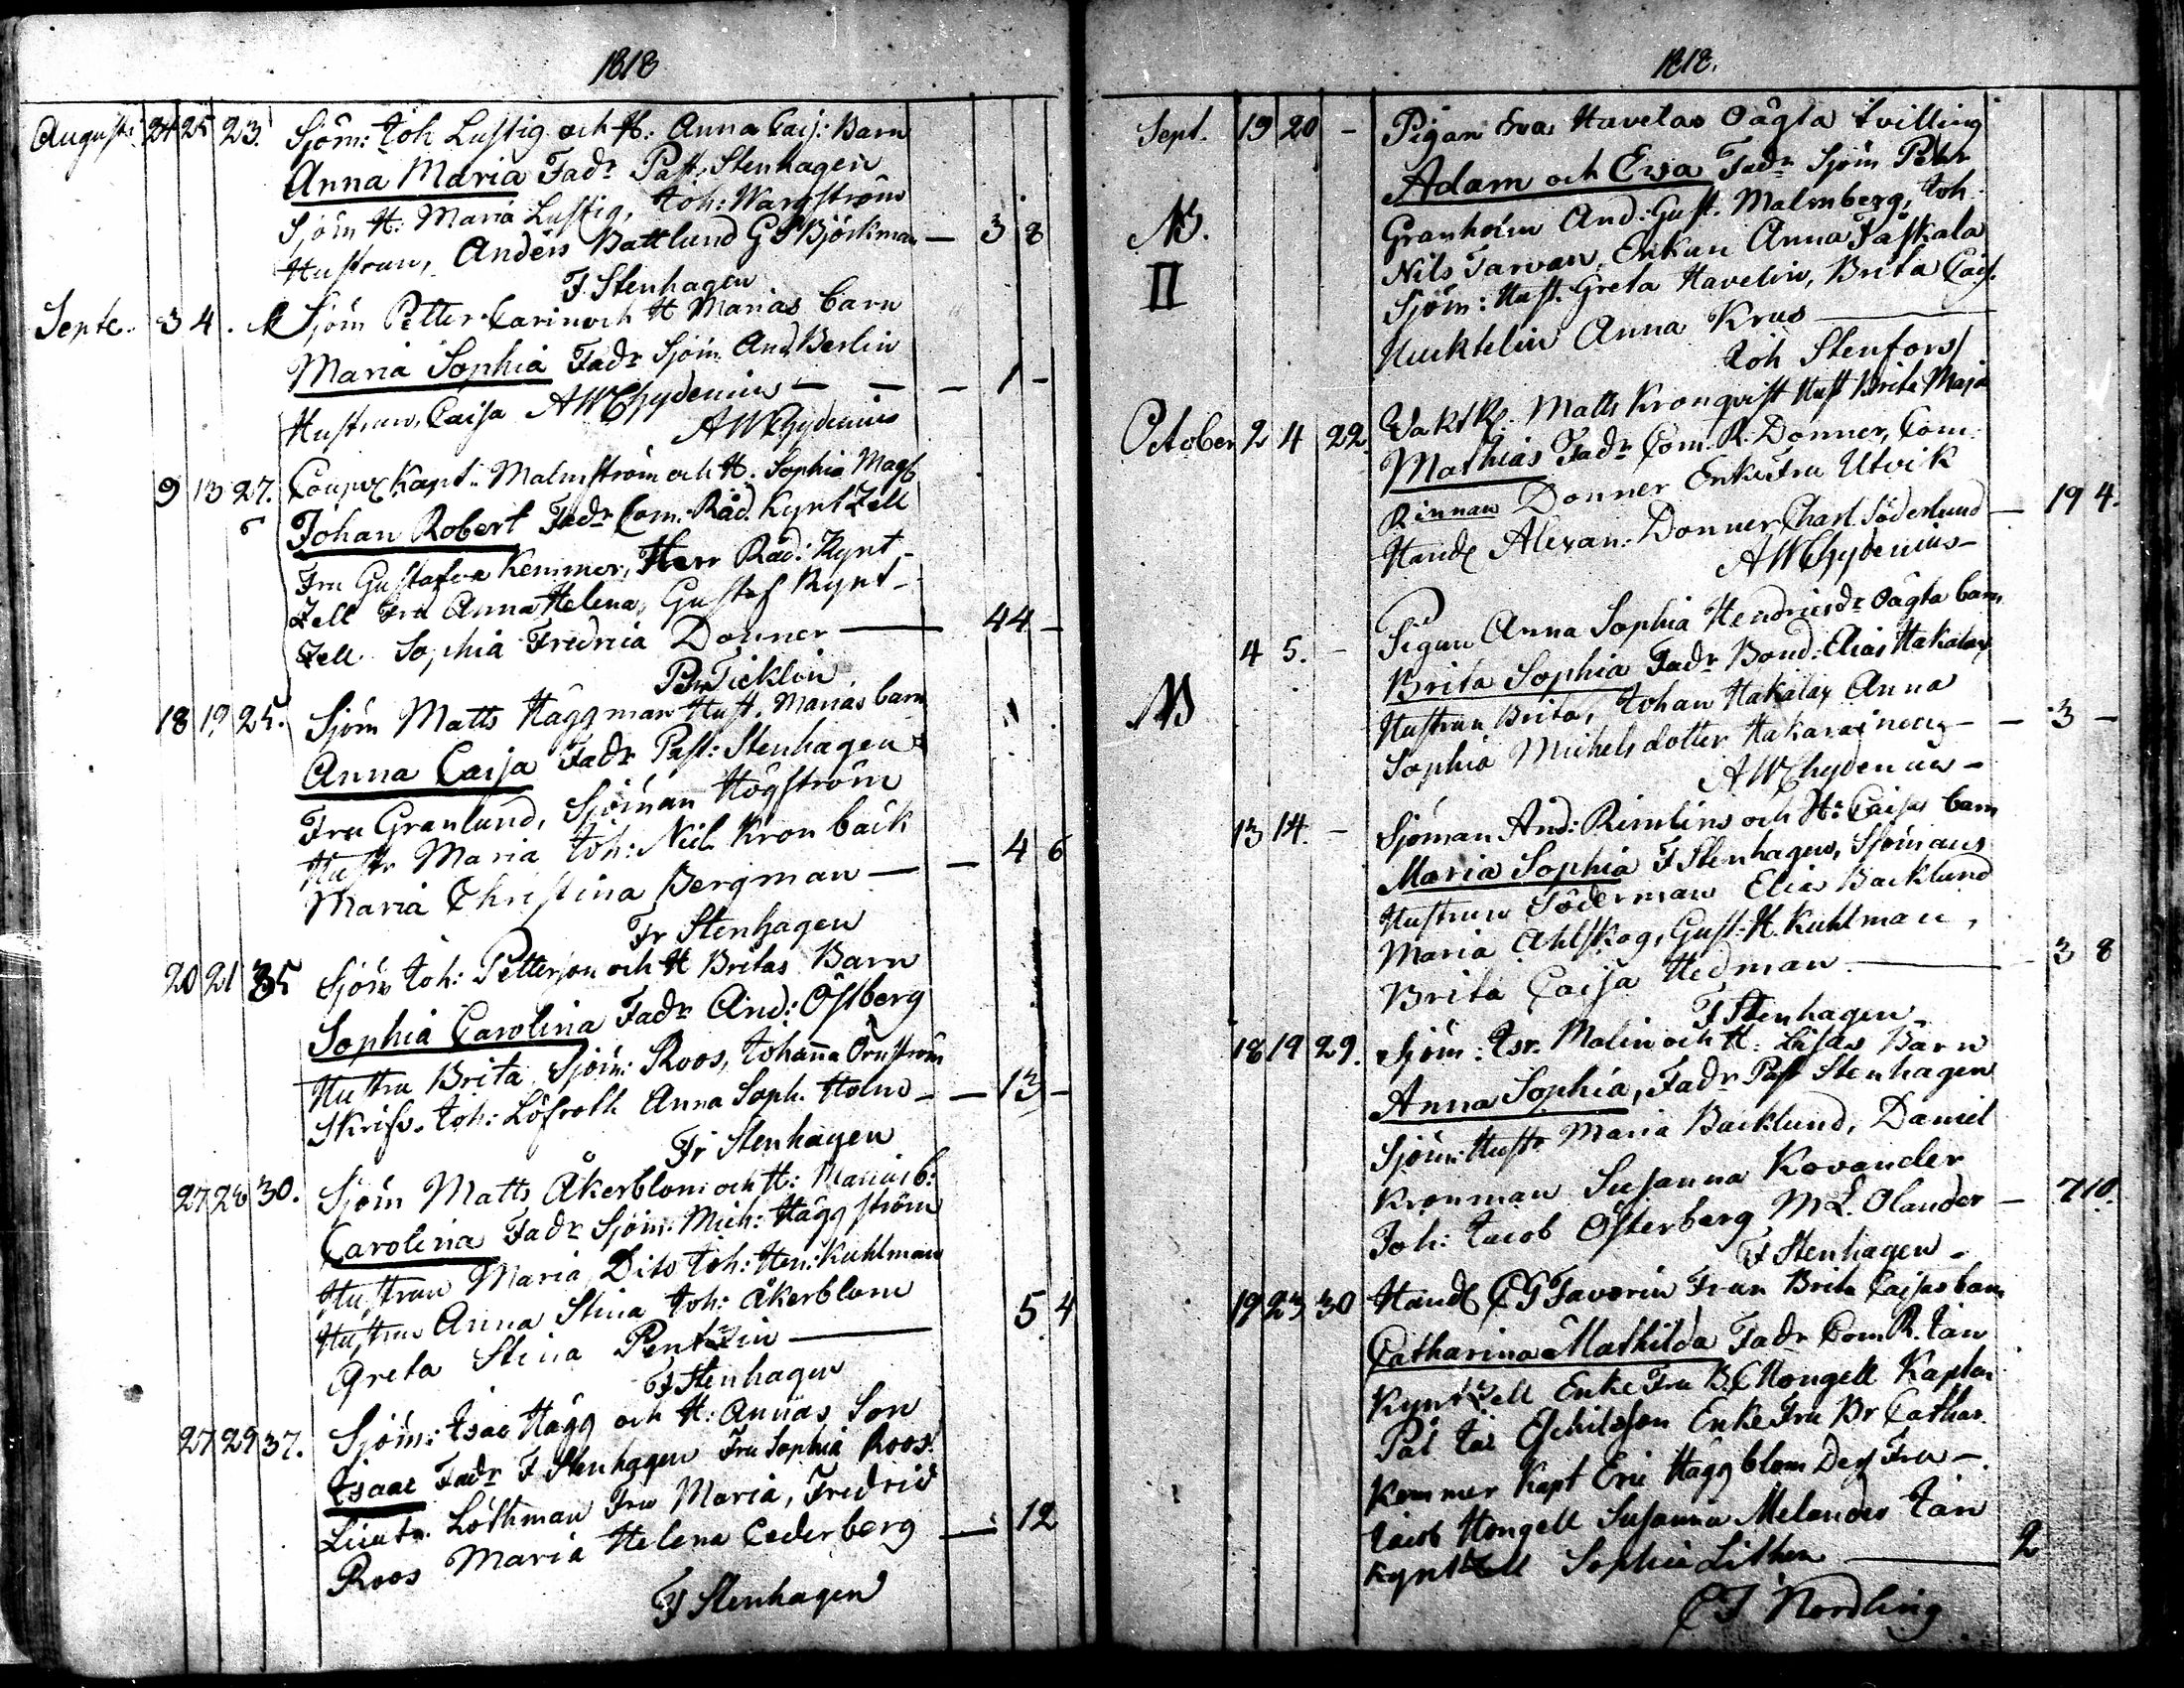 1818
Augusti 24 25 23. Sjöm: Joh Lustig och H: Anna Cais: Barn
Anna Maria Fadr Past. Stenhagen
Sjöm H: Maria Lustig, Joh: Wargström
Hustrun, Anders Battlund G S Björkman — 3 8
F. Stenhagen
Septe. 3 4. Sjöm Petter Carin och H Marias barn
Maria Sophia Fadr Sjöm. And Berlin
Hustrun, Caisa AWChydenius — — — 1 —
AWChydenius
9 13 27. Kapt. Malmström och H: Sophia Mags
6 Johan Robert Fadr Com. Råd. Kyntzell
Fru Gustafva Kemmer, Herr Råd: Kynt-
zell Fru Anna Helena, Gustaf Kynt-
zell Sophia Fredrica Donner — 44 —
Ticklin
18 19 25. Sjöm Matts Häggman Hust. Marias barn
Anna Caisa Fadr Past: Stenhagen
Fru Granlund, Sjöman Högström
Hustr Maria Joh: Nic. Kronbäck
Maria Christina Bergman — — 4 6
Fr Stenhagen
20 21 35 Sjöm Joh: Petterson och H Britas Barn
Sophia Carolina Fadr And: Östberg
Hustru Brita, Sjöm: Roos, Johanna Örnström
Skrifv. Joh: Löfroth Anna Soph. Holm — — 13 —
Fr Stenhagen
27 28 30. Sjöm Matts Åkerblom och H: Marias b:
Carolina Fadr Sjöm: Mich: Häggström
Hustrun Maria, Dito Joh: Hen: Kuhlman
Hustrun Anna Stina Joh: Åkerblom 5 4
Greta Stina Pentzin —
F Stenhagen
27 29 37. Sjöm: Isac Hägg och H: Annas Son
Isaac Fadr F Stenhagen Fru Sophia Roos.
Lieutn. Löthman Fru Maria, Fredric
Roos Maria Helena Cederberg — 12
F Stenhagen
1818.
Sept. 19 20 — Pigan Eva Havelas Oägta tvilling
Adam och Ewa Fadr Sjöm Pehr
NB. Granholm And: Gust. Malmberg, Joh.
Nils Tarvan, Enkan Anna Paskala
II Sjöm: Hust. Greta Havelin, Brita Cajs.
Anna Krus —
Joh Stenfors
October 2 4 22. Matts Kronqvist Hust Brita Maja
Mathias Fadr Com. R. Donner, Com.
Rinnan Donner Enke Fru Utvik
Handl Alexan. Donner Charl. Söderlund — 19 4.
AWChydenius —
4 5. — Pigan Anna Sophia Hendricsdr Oägta barn
Brita Sophia Fadr Bond: Elias Hakalax
NB Hustrun Brita, Johan Hakalax Anna
Sophia Michelsdotter Hakarainen — — 3 —
AWChydenius —
13 14. — Sjöman And: Rimlins och H: Caisas barn
Maria Sophia F Stenhagen, Sjömans
Hustrun Söderman Elias Backlund
Maria Ahlskog, Gust: H. Kuhlman,
Brita Caisa Hedman — 3 8
F Stenhagen
18 19 29. Sjöm: Isr. Malin och H: Lisas Barn
Anna Sophia, Fadr Past Stenhagen
Sjöm: Hustr Maria Backlund, Daniel
Kronman Susanna Kovander
Joh: Jacob Österberg M L. Olander — 7 10.
F Stenhagen —
19 23 30 Handl C G Favorin Frun Brita Cajsas barn
Catharina Mathilda Fadr Com R. Jan
Kyntzell Enke Fru B. C Hongell Kapten
Pål Jac Eschilsson Enke Fru Br Cathar.
Kemmer Kapt Eric Häggblom Des Fru —
Jacob Hongell Susanna Melander Jan
Kyntzell Sophia Lithen — 2
C J Nordling